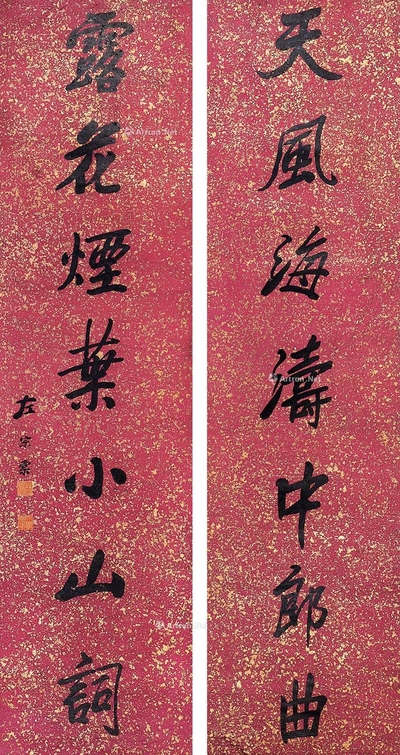 天風海濤中郎曲
露花煙葉小山詞
左宗棠
Artron.Net
Artron.Net